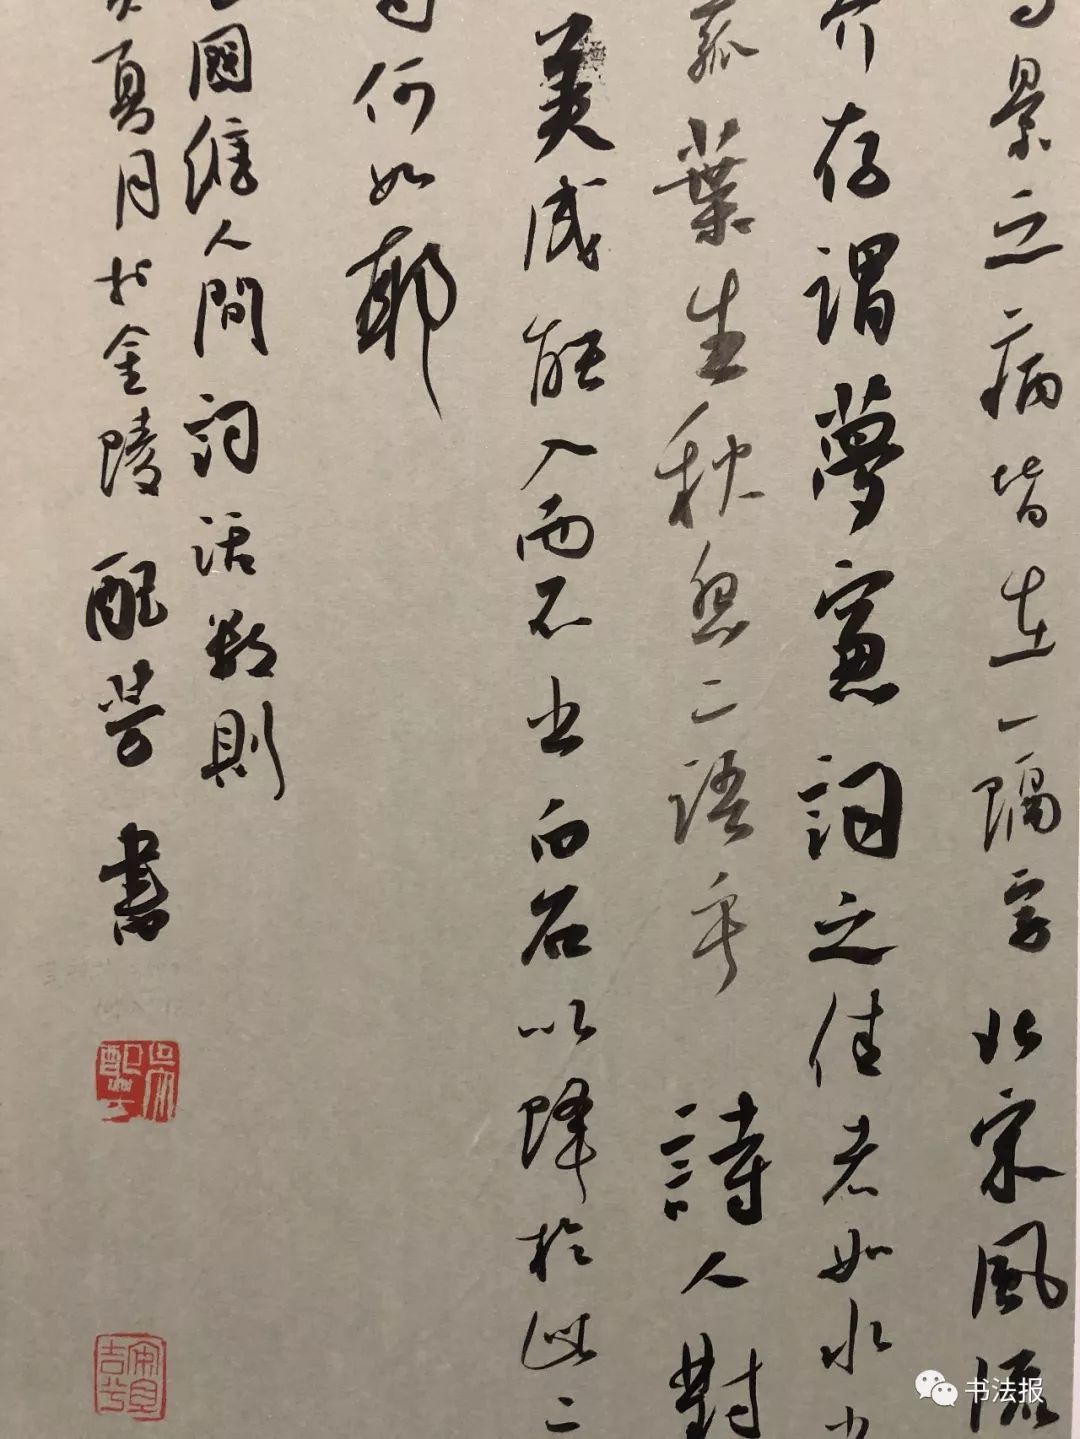 景之病皆在一隔字北宋風流
介存謂夢窗詞之佳者如水
葉生秋怨二語乎 詩人對
美成能入而不出白石以降於此二
何如耶
國維人間詞話數則
夏月於金陵 配芳 書
书法报